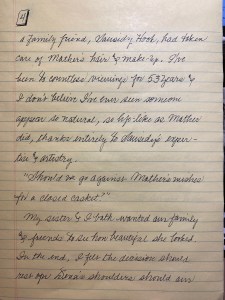 4
a family friend, Pansidy Hook, had taken
care of Mother's hair & make-up. I've
been to countless viewings for 53 years &
I don't believe I've ever seen someone
appear so natural, so life-like as Mother
did, thanks entirely to exper-
tise & artistry.
"Should we go against Mother's wishes
for a closed casket?"
My sister & I both wanted our family
& friends to see how beautiful she looked.
In the end, I felt the decision should
rest on shoulders should our